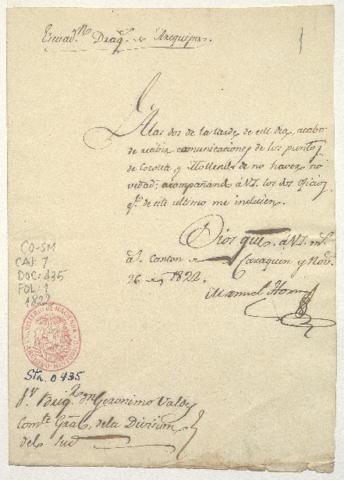 Escuad.ⁿ Drag.ˢ de Arequipa.
1
A las dos de la tarde de este dia, acabo
de recibir comunicaciones de los puntos
de y Mollendo de no haver no
vedad; acompañando á V.S. los dos oficios
q.ᵉ de este ultimo me incluien.
Dios gue. á V.S. m.ˢ
a.ˢ Canton de y Nov.ᵉ
26 de 1822
Manuel
CO-SM
CAJ: 7
DOC: 435
FOL: 1
1822
MINISTERIO DE HACIENDA
Sta. 0435
S.ʳ Brig.ʳ Don Geronimo Valdes
Com.ᵗᵉ Gral. de la Division
del Sud